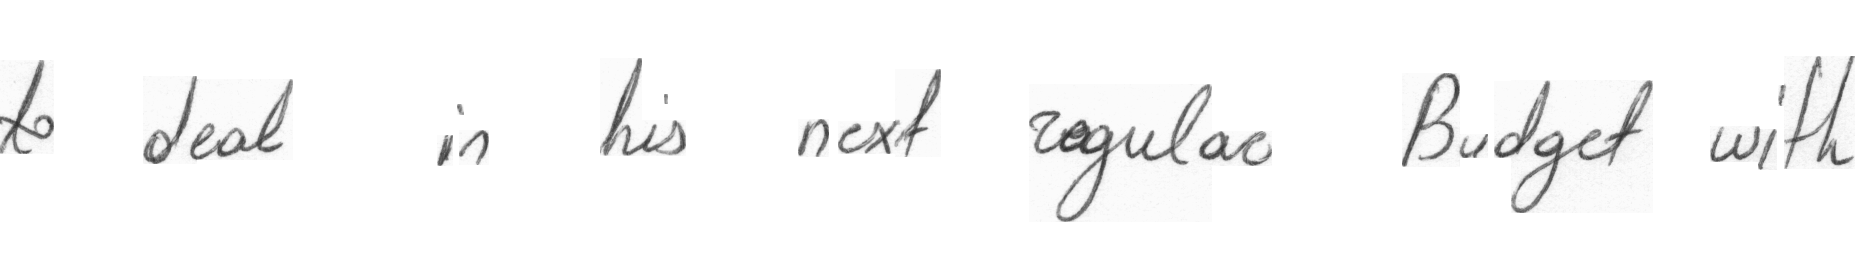 to deal in his next regular Budget with